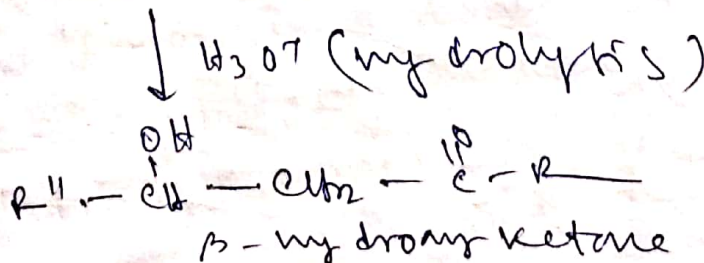 ↓ H3O+ (hydrolysis)
OH O
R".-CH-CH2-C-R
β-hydroxy ketone